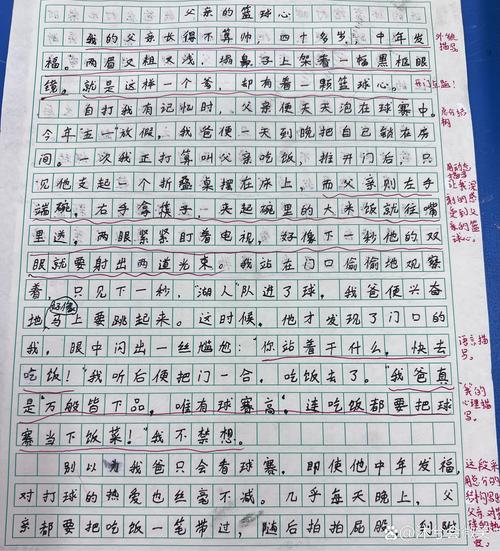 父亲的篮球心
我的父亲长得不算帅,四十多岁,中年发
福。两眉又粗又浅,塌鼻子上架着一幅黑框眼
镜。就是这样一个爸,却有着一颗篮球心。
自打我有记忆时,父亲便天天泡在球赛中。
今年"五一"放假,我爸便一天到晚把自己锁在房
间。一次我正打算叫父亲吃饭,推开门后,只
见他支起一个折叠桌摆在床上,而父亲则左手
端碗,右手拿筷子一夹起碗里的大米饭就往嘴
里送,两眼紧紧盯着电视,好像下一秒他的双
眼就要射出两道光束。我站在门口偷偷地观察
着,只见下一秒,"湖人"队进了球,我爸便兴奋
地好像马上要跳起来。这时候,他才发现了门口的
我,眼中闪出一丝尴尬:"你站着干什么,快去
吃饭!"我听后便把门一合,吃饭去了。"我爸真
是'万般皆下品,唯有球赛高',连吃饭都要把球
赛当下饭菜!"我不禁想。
别以为我爸只会看球赛,即使他中年发福,
对打球的热爱也丝毫不减。几乎每天晚上,父
亲都要把吃饭一笔带过,随后拍拍屁股,到队
外貌
描写
开门见题!
总分结构
语言描
写。
"我的
心理描
写。
这段采
用总分的
结构写